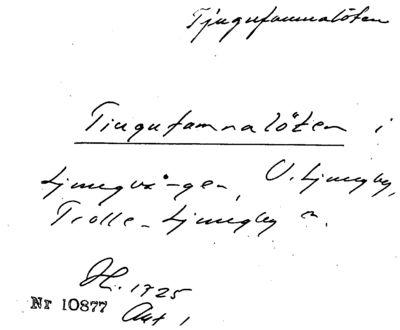 Tjugufamnalöten
Tiugufamnalöten i
Ljungvången, V. Ljungby,
Trolle-Ljungby
1725
Nr 10877 Akt 1